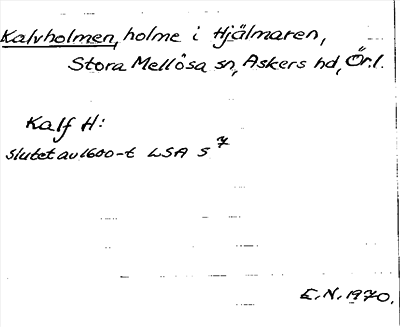 Kalvholmen, holme i Hjälmaren,
Stora Mellösa sn, Askers hd, Ör.l.
Kalf H:
slutet av 1600-t LSA S 7
E.N. 1970.